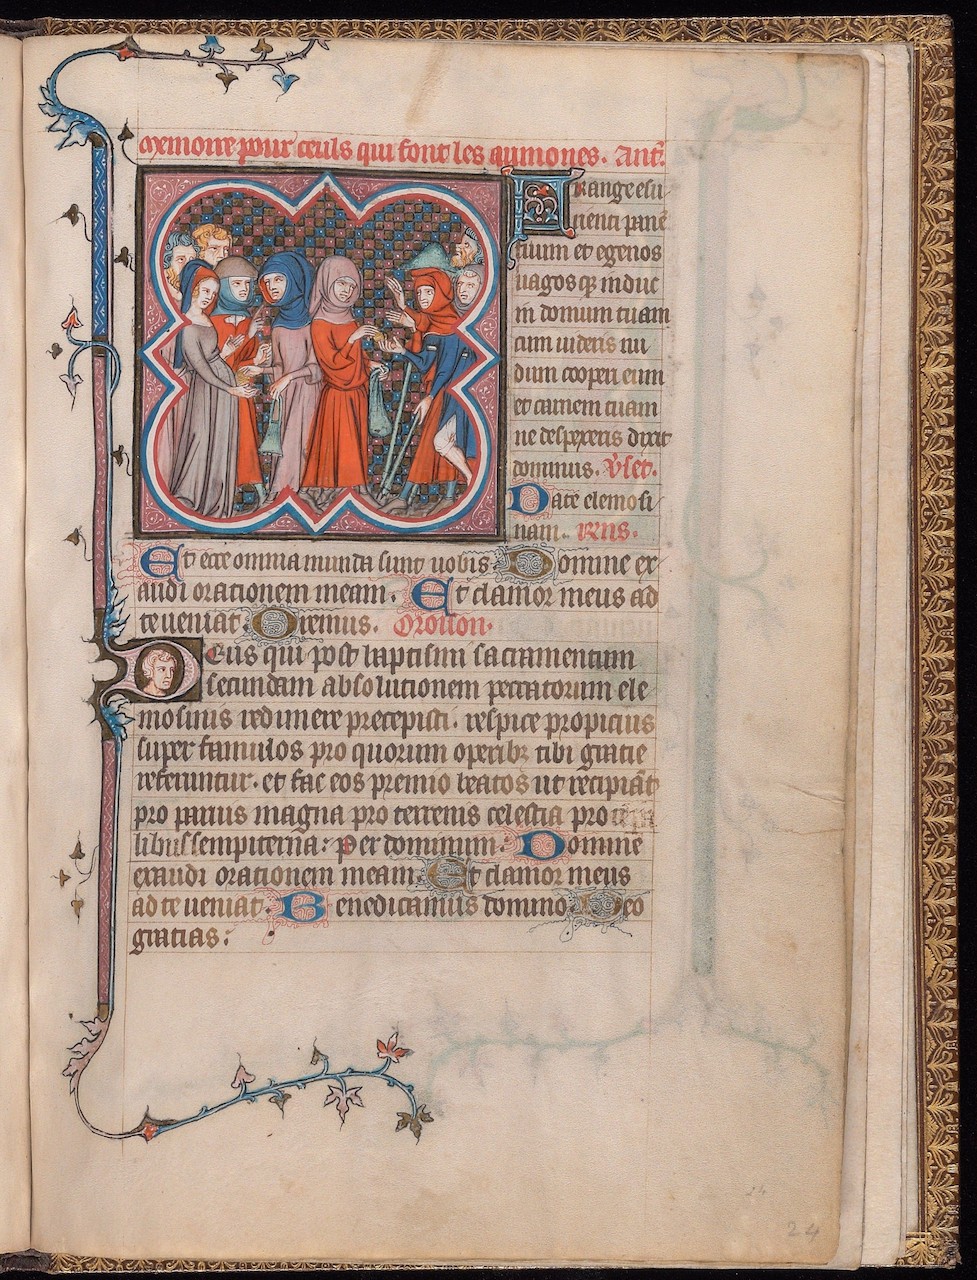 Memoire pour ceuls qui font les aumones. Ant.
Frange esu
rienti panē
tuum et egenos
vagosq; induc
in domum tuam
cum videris nu
dum cooperi eum
et carnem tuam
ne despexeris dixit
dominus. Vset.
Date elemosi
nam. Rns.
Et ecce omnia munda sunt vobis. Domine ex
audi orationem meam. Et clamor meus ad
te veniat. Oremus. Oroison.
Deus qui post baptismi sacramentum
secundam absolutionem peccatorum ele
mosinis redimere precepisti. respice propicius
super famulos pro quorum operib; tibi gratie
referuntur. et fac eos premio beatos ut recipiāt
pro parvis magna pro terrenis celestia pro tēpa
libus sempiterna: Per dominum. Domine
exaudi orationem meam. Et clamor meus
ad te veniat. Benedicamus domino Deo
gratias.
24
24